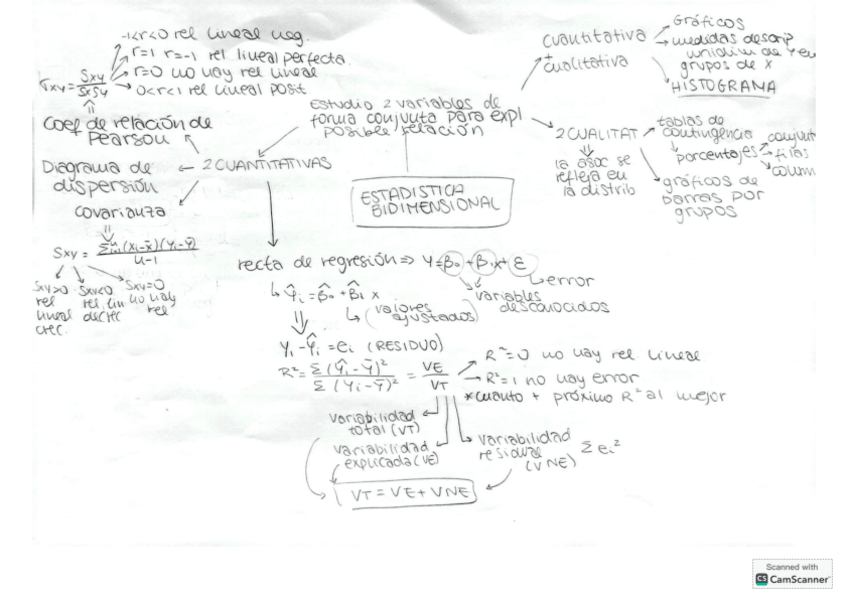 -1<r<0 rel lineal neg.
r=1 r=-1 rel lineal perfecta.
r=0 no hay rel lineal
0<r<1 rel lineal posit
rxy = Sxy / SxSy
Coef de relación de
Pearson
Diagrama de
dispersión
covarianza
Sxy = Σⁿᵢ₌₁(xi-x̄)(yi-ȳ) / n-1
Sxy>0
rel
lineal
crec.
Sxy<0
rel. lin
decrec
Sxy=0
no hay
rel
2 CUANTITATIVAS
Estudio 2 variables de
forma conjunta para expl
posible relación
ESTADISTICA
BIDIMENSIONAL
cuantitativa
+cualitativa
Gráficos
medidas descrip
unidim de Y en
grupos de X
HISTOGRAMA
2 CUALITAT
la asoc se
refleja en
la distrib
tablas de
contingencia
porcentajes
conjunt
filas
colum
gráficos de
barras por
grupos
recta de regresión => Y=β₀+β₁x+ε
error
variables
desconocidos
ŷi = β̂₀ + β̂₁ x
(valores
ajustados)
yi - ŷi = ei (RESIDUO)
R² = Σ(ŷi - ȳ)² / Σ(yi - ȳ)² = VE / VT
R²=0 no hay rel lineal
R²=1 no hay error
*cuanto + próximo R² a1 mejor
variabilidad
total (VT)
variabilidad
explicada (VE)
variabilidad
residual
(VNE)
Σ ei²
VT = VE + VNE
Scanned with
CS CamScanner